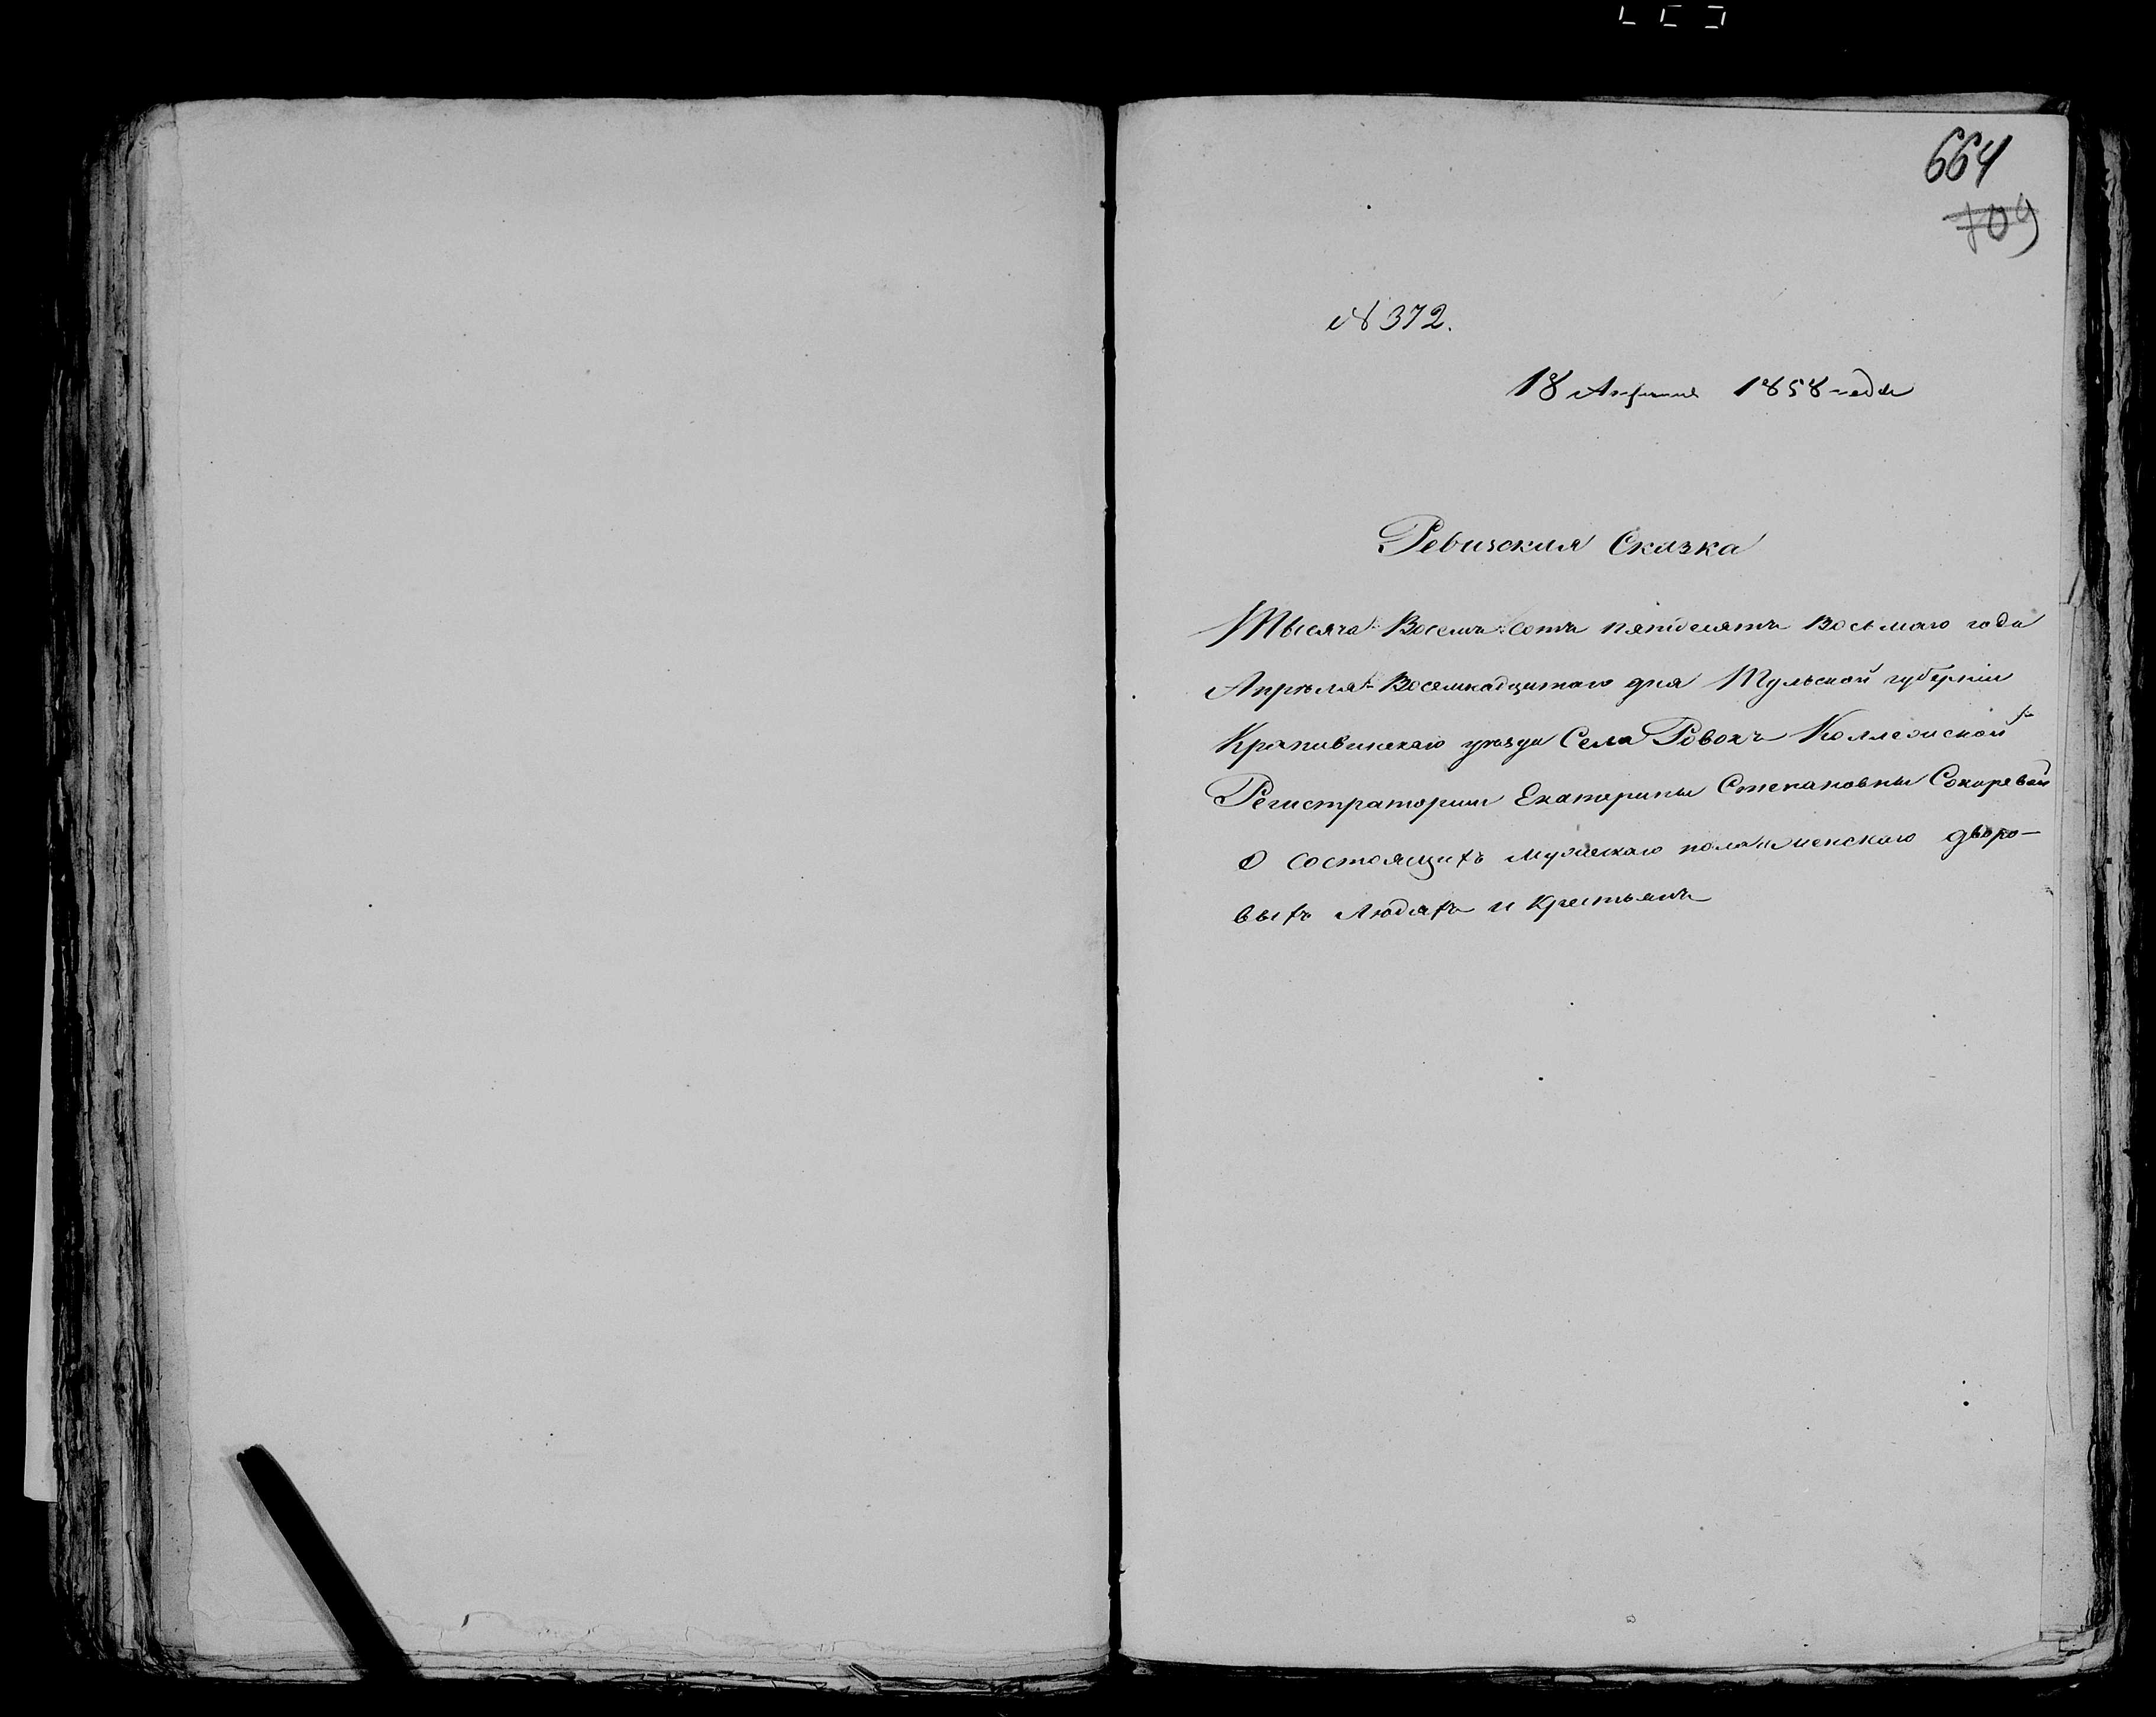 664
709
№ 372.
18 Апреля 1858 года
Ревизская Сказка
Тысяча Восемь сотъ пятидесятъ Восьмаго года
Апрѣля Восемнадцатаго дня Тульской губерніи
Крапивинскаго уѣзда Села Ровокъ Коллежской
Регистраторши Екатерины Степановны Сокоревой
О состоящихъ мужескаго пола и женскаго дворо-
выхъ людяхъ и крестьянъ